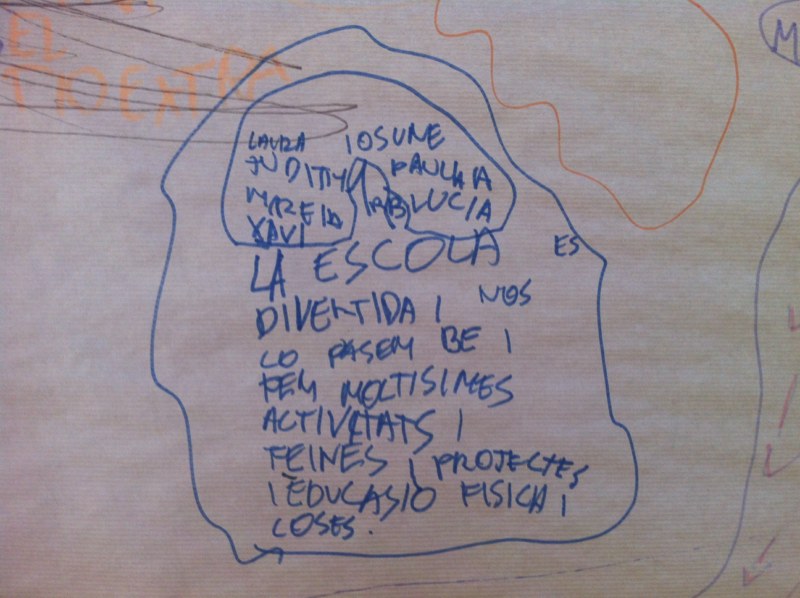 EL
M
LAURA IOSUNE
JUDITH PAULA IA
MIREIA LUCIA
XAVI
LA ESCOLA ES
DIVERTIDA I NOS
LO PASEM BE I
FEM MOLTISIMES
ACTIVITATS I
FEINES I PROJECTES
I EDUCASIO FISICA I
COSES.